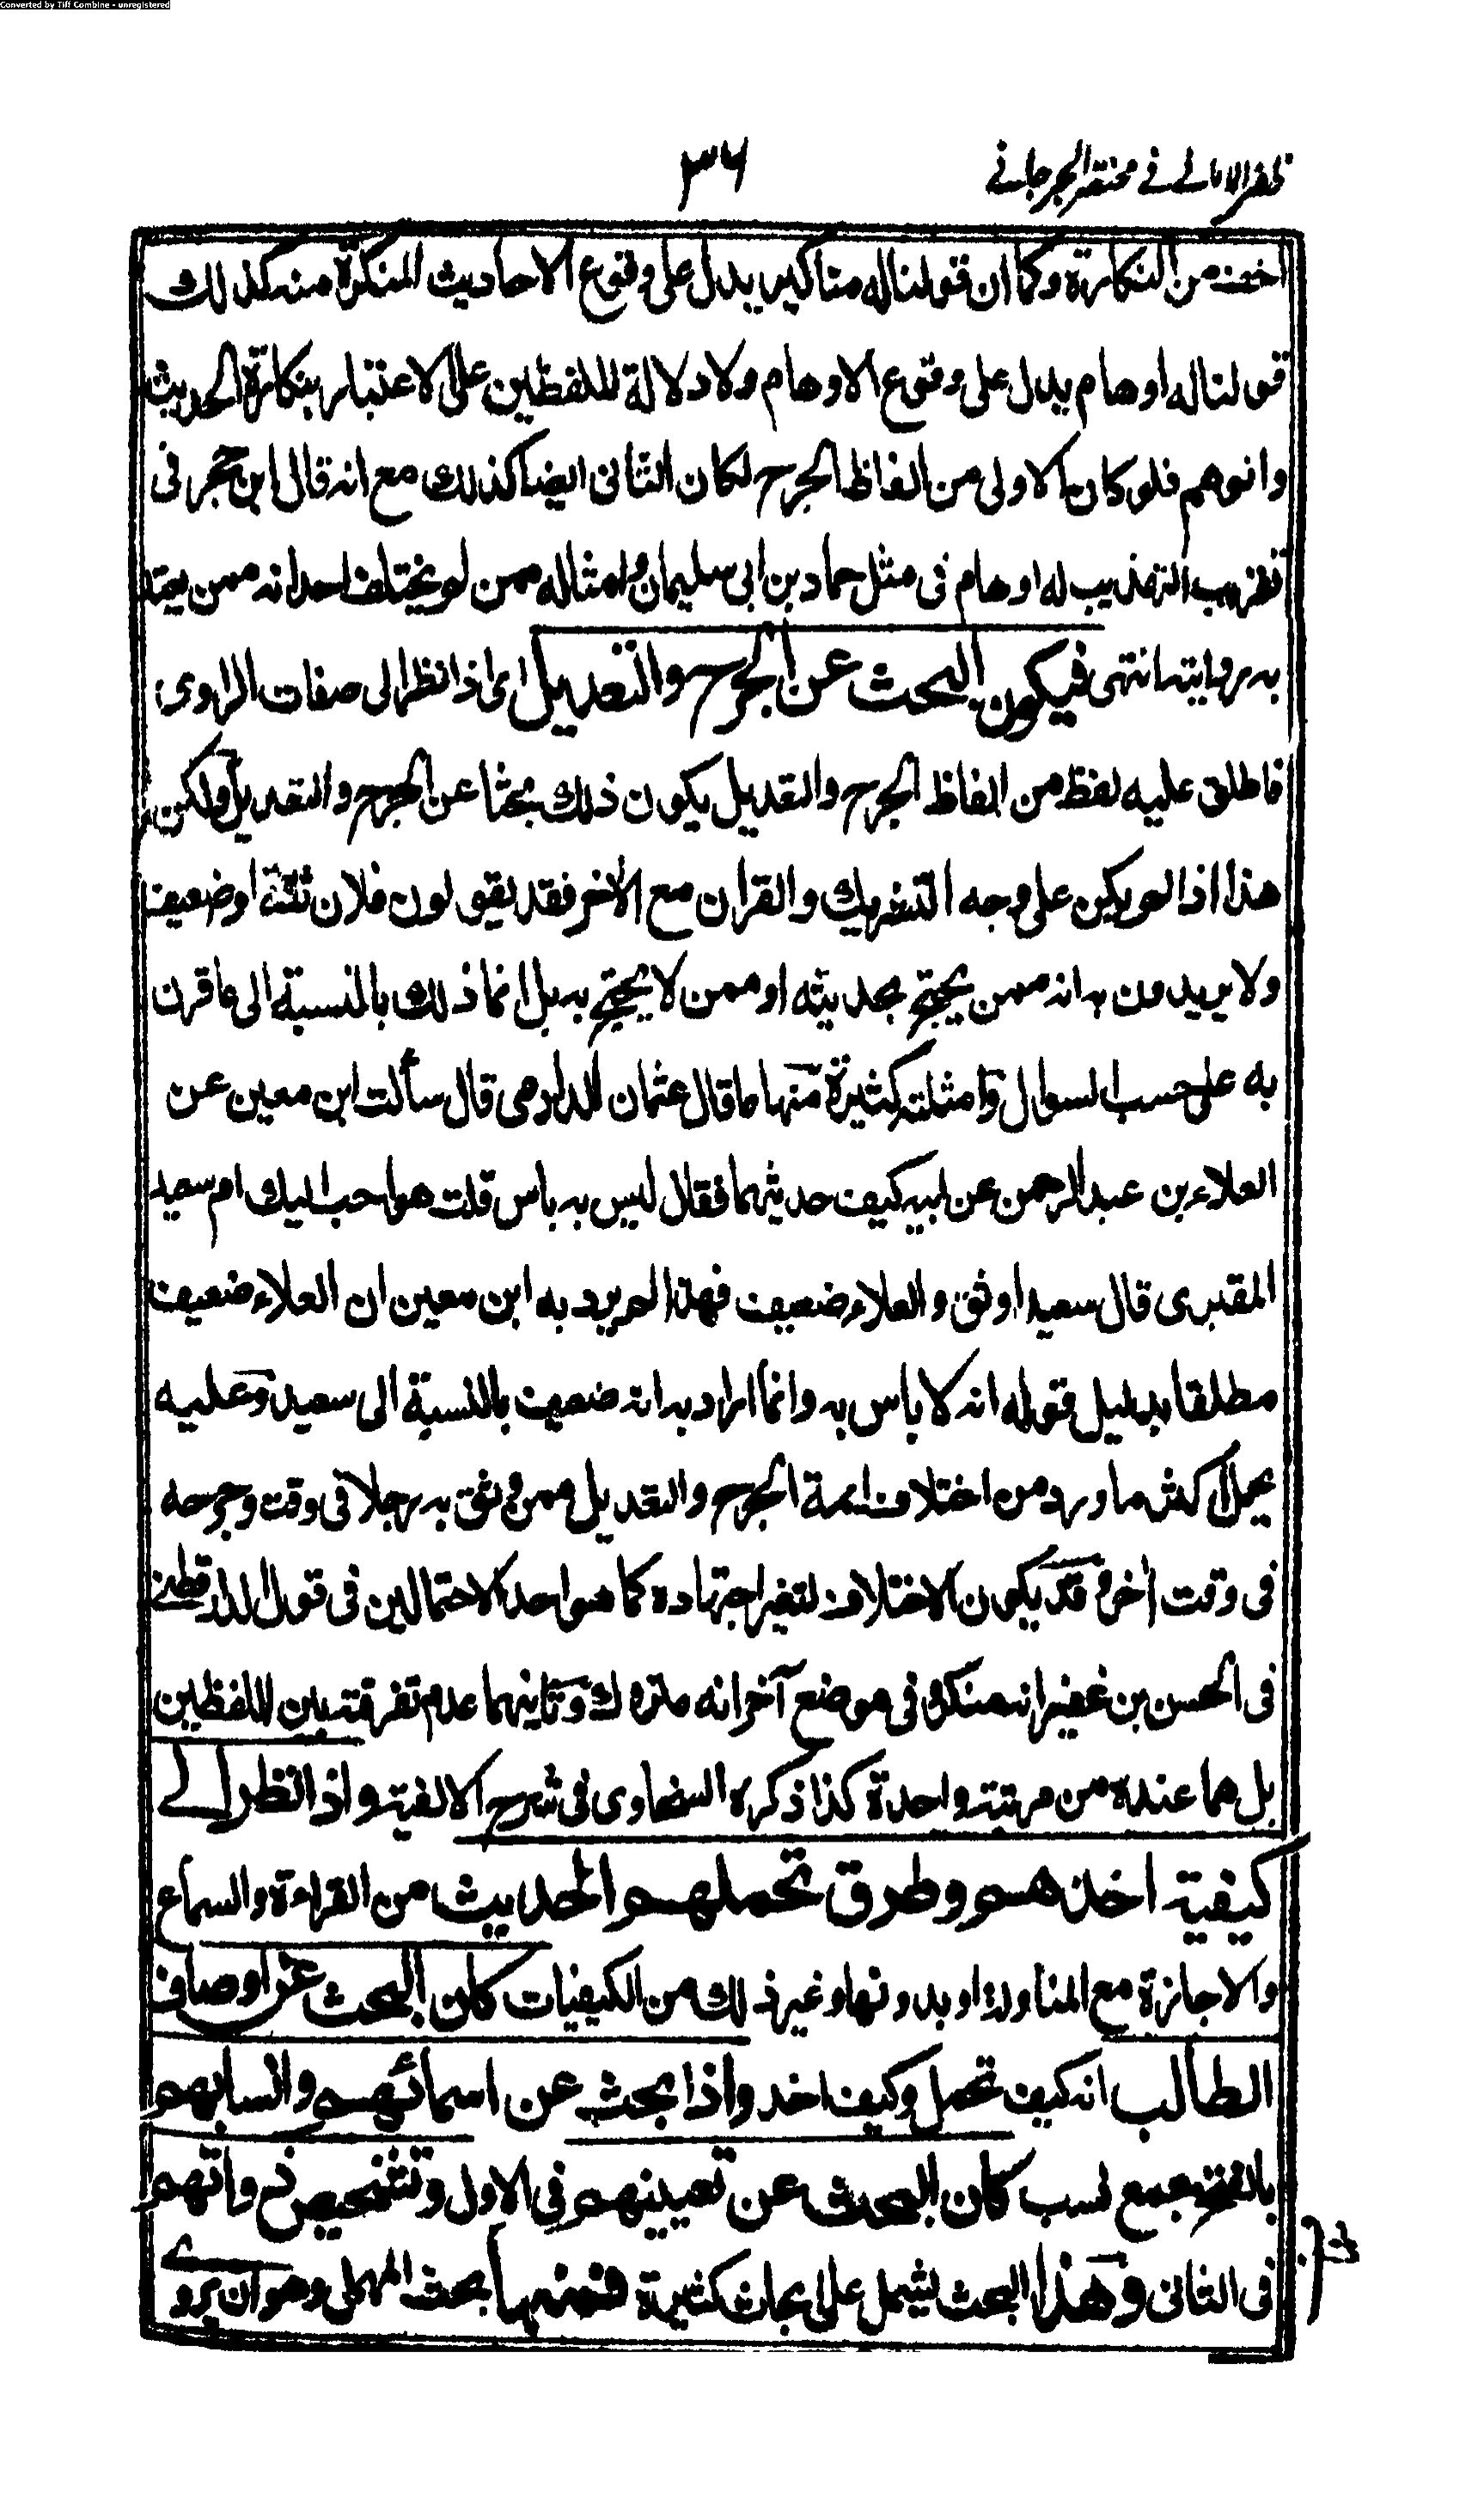 Converted by Tiff Combine - unregistered
ظفر الامانی فی مختصر الجرجانی
۳۶
اخف من النكارة وكما ان قولنا له مناكير يدل على وقوع الاحاديث المنكرة منه كذلك
قولنا له اوهام يدل على وقوع الاوهام ولا دلالة للفظين على الاعتبار بنكارة الحديث
وانوهم فلو كان الاولى من الفاظ الجرح لكان الثانى ايضا كذلك مع انه قال ابن حجر فى
تقريب التهذيب له اوهام فى مثل حماد بن ابى سليمان وامثاله ممن لم يختلف احد انه ممن يعتد
به برواياته انتهى فيكون البحث عن الجرح والتعديل اى اذا نظر الى صفات الراوى
فاطلق عليه لفظ من الفاظ الجرح والتعديل يكون ذلك بحثا عن الجرح والتعديل ولكن
هذا اذا لم يكن على وجه التشريك والقران مع الاخر فقد يقولون فلان ثقة او ضعيف
ولا يريدون به انه ممن يحتج بحديثه او ممن لا يحتج به بل انما ذلك بالنسبة الى ما قرن
به على حسب السوال وامثلته كثيرة منها ما قال عثمان الدارمى قال سألت ابن معين عن
العلاء بن عبد الرحمن عن ابيه كيف حديثهما فقال ليس به باس قلت هو احب اليك ام سعيد
المقبرى قال سعيد اوثق والعلاء ضعيف فهذا لم يرد به ابن معين ان العلاء ضعيف
مطلقا بدليل قوله انه لا باس به وانما اراد به انه ضعيف بالنسبة الى سعيد وعليه
يحمل اكثر ما ورد من اختلاف ائمة الجرح والتعديل ممن وثق به رجلا فى وقت وجرحه
فى وقت اخر وقد يكون الاختلاف لتغير اجتهاده كما هو احد الاحتمالين فى قول الدارقطنى
فى الحسن بن غفير انه منكر وفى موضع آخر انه متروك وثانيهما عدم تفرقته بين اللفظين
بل هما عنده من مرتبة واحدة كذا ذكره السخاوى فى شرح الالفية واذا نظر الى
كيفية اخذهم وطرق تحملهم الحديث من القراءة والسماع
والاجازة مع المناولة او بدونها وغير ذلك من الكيفيات كان البحث عن اوصاف
الطالب انه كيف تحمل وكيف اخذ واذا بحث عن اسمائهم وانسابهم
بالفتح جمع نسب كان البحث عن تعيينهم فى الاول وتشخيص ذواتهم
فى الثانى وهذا البحث يشمل على ابحاث كثيرة فمنها بحث المهمل وهو ان يروى